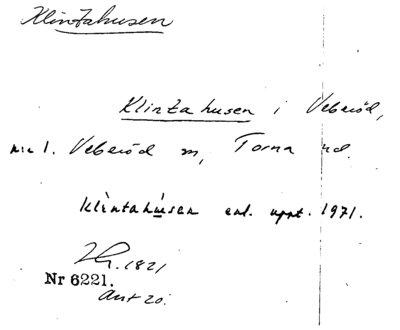 Klintahusen
Klintahusen i Veberöd,
nr 1. Veberöd sn, Torna hd.
klìntahúsen enl. uppt. 1971.
1821
Nr 6221.
Ant 20.